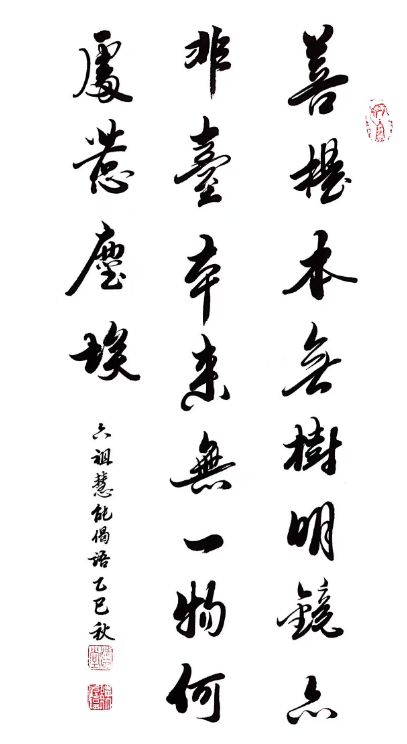 菩提本無樹明鏡亦
非臺本来無一物何
處惹塵埃
六祖慧能偈語乙巳秋